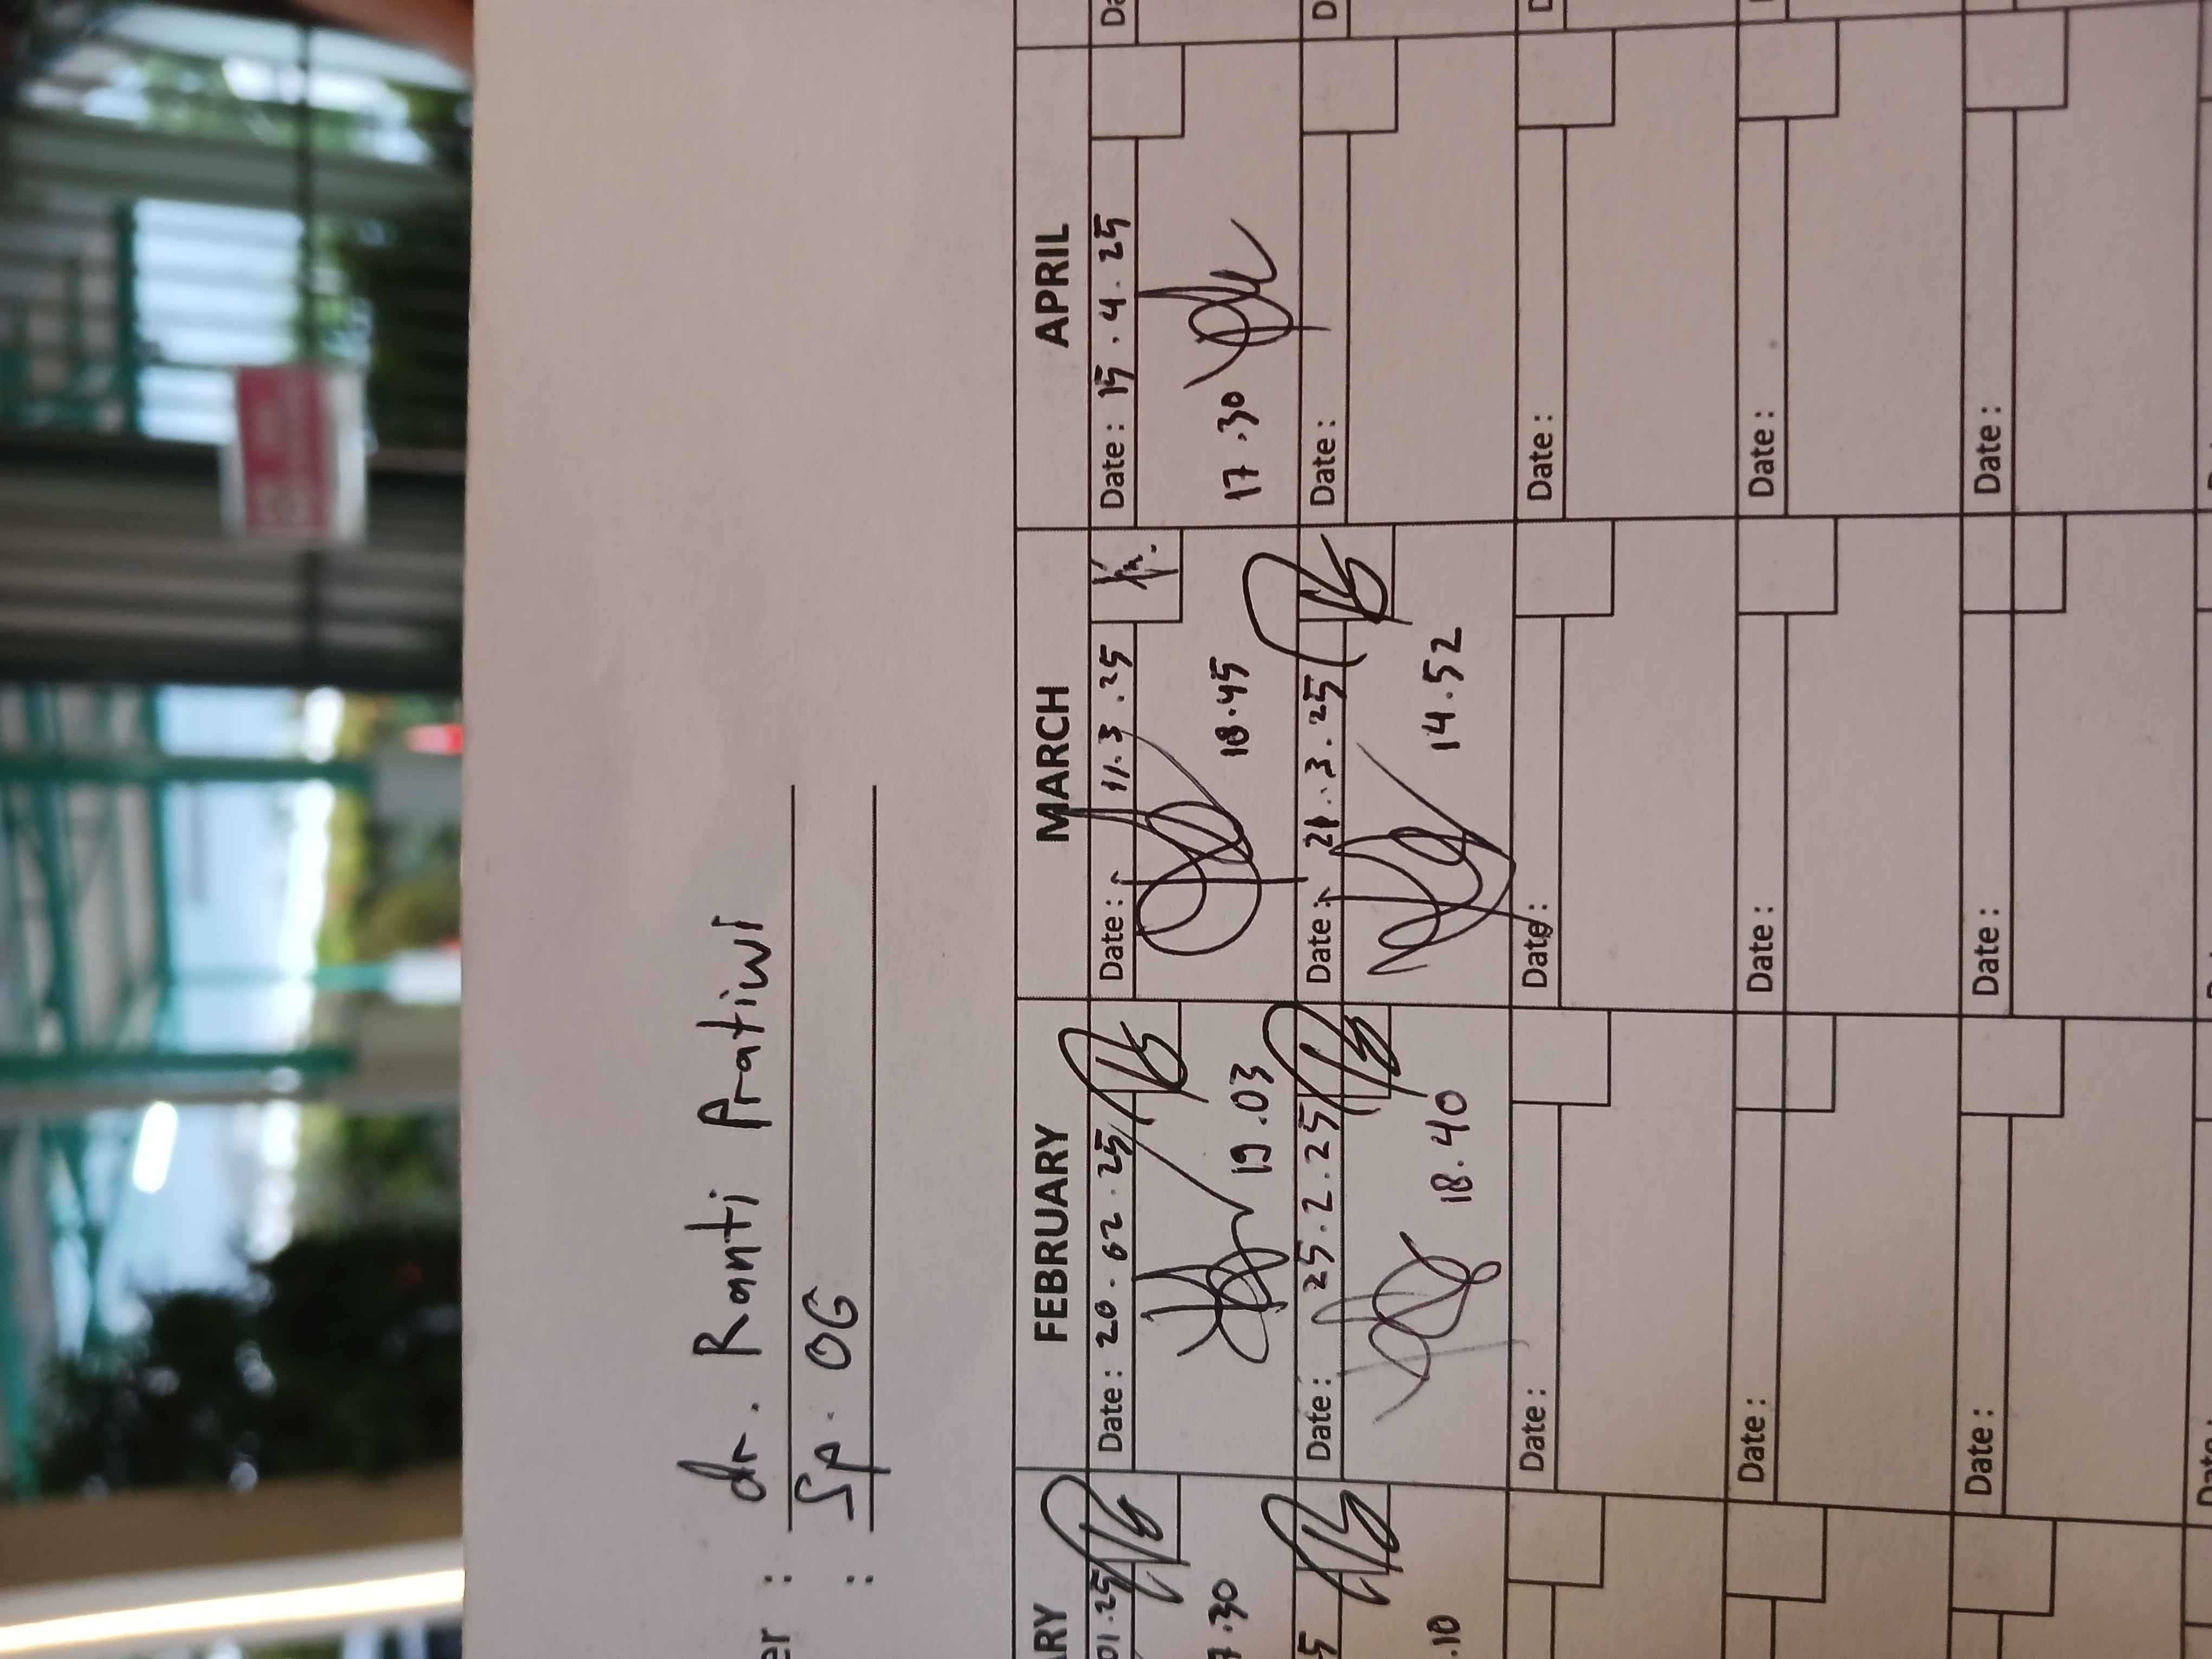 er : dr. Ranti Pratiwi
: Sp. OG
ARY FEBRUARY MARCH APRIL
01.25 Date: 20.02.25 Date: 11.3.25 Date: 15.4.25 Da
7.30 19.03 18.45 17.30
5 Date: 25.2.25 Date: 21.3.25 Date: D
.10 18.40 14.52
Date: Date: Date: D
Date: Date: Date:
Date: Date: Date: